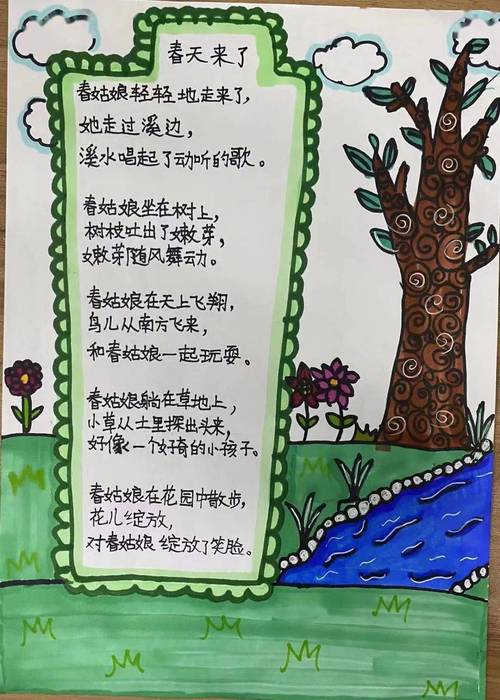 春天来了
春姑娘轻轻地走来了，
她走过溪边，
溪水唱起了动听的歌。
春姑娘坐在树上，
树枝吐出了嫩芽，
嫩芽随风舞动。
春姑娘在天上飞翔，
鸟儿从南方飞来，
和春姑娘一起玩耍。
春姑娘躺在草地上，
小草从土里探出头来，
好像一个好奇的小孩子。
春姑娘在花园中散步，
花儿绽放，
对春姑娘绽放了笑脸。